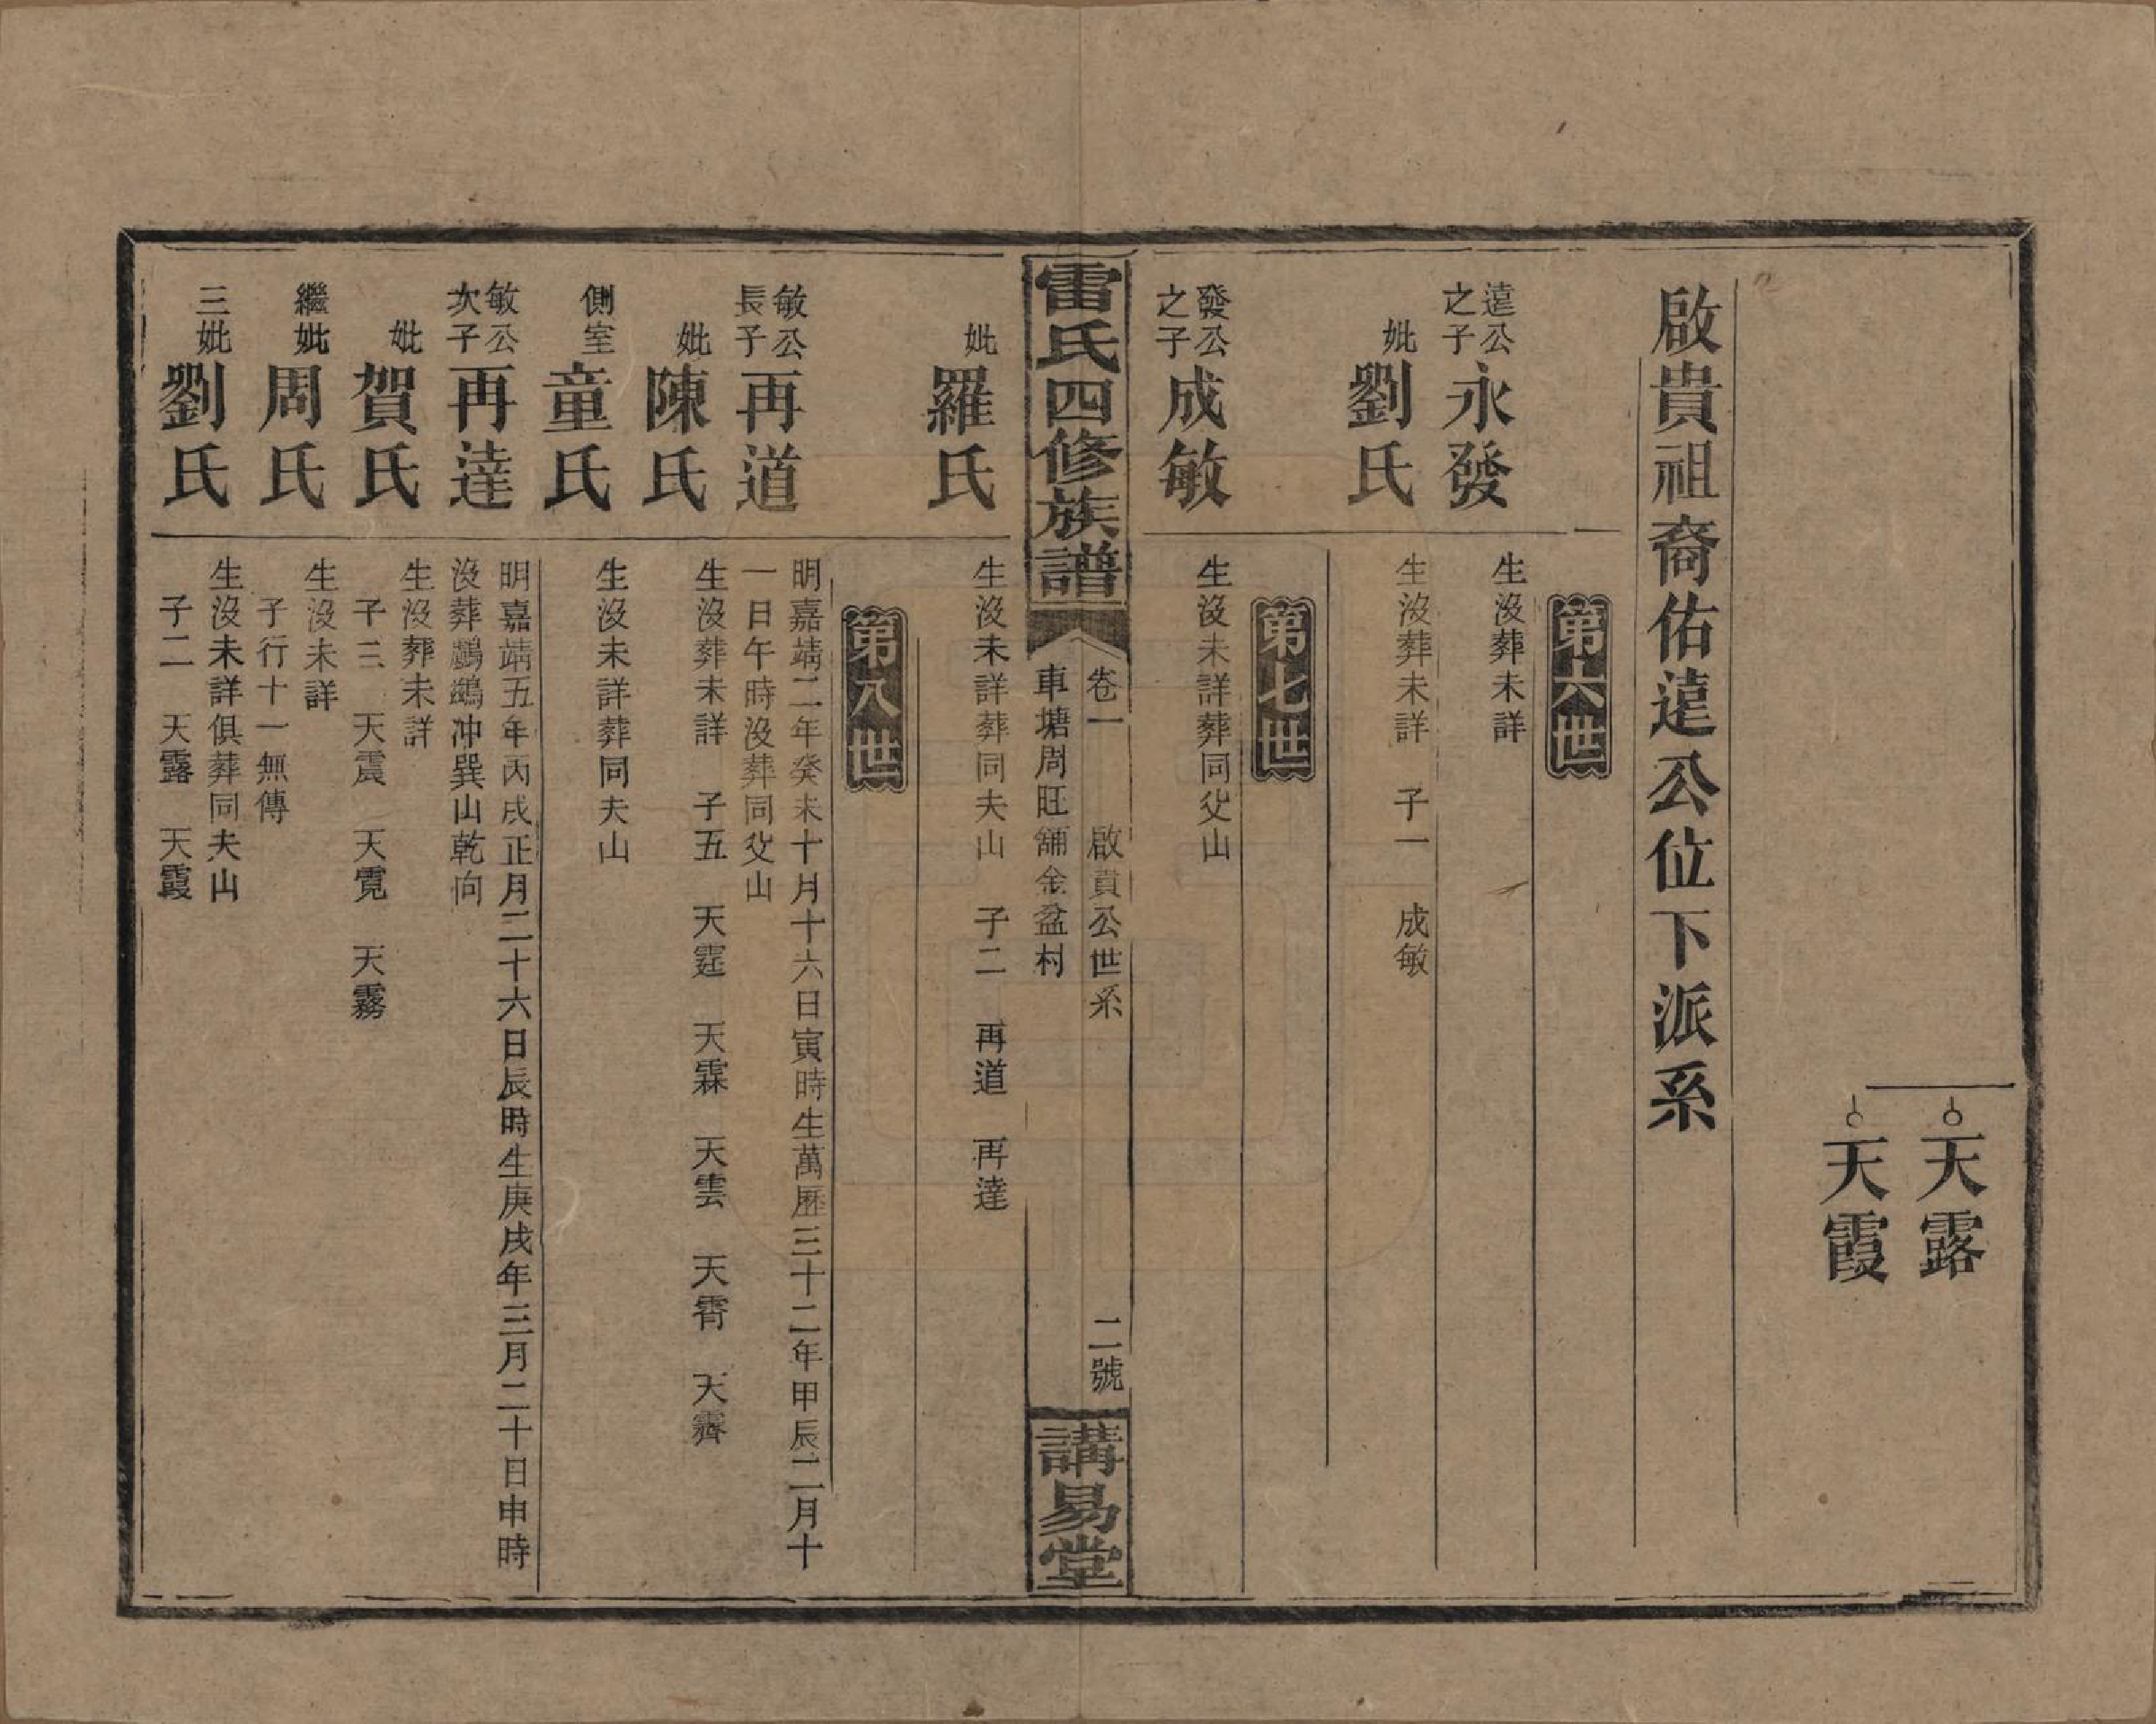 天露
天霞
啟貴祖裔佑遠公位下派系
第六世
遠公之子 永發
生沒葬未詳
妣 劉氏
生沒葬未詳 子一 成敏
第七世
發公之子 成敏
生沒未詳葬同父山
雷氏四修族譜
卷一 啟貴公世系 二號
車塘周旺舖金盆村
講易堂
妣 羅氏
生沒未詳葬同夫山 子二 再道 再達
第八世
敏公長子 再道
明嘉靖二年癸未十月十六日寅時生萬歷三十二年甲辰二月十
一日午時沒葬同父山
妣 陳氏
生沒葬未詳 子五 天霆 天霖 天雲 天霄 天霽
側室 童氏
生沒未詳葬同夫山
敏公次子 再達
明嘉靖五年丙戌正月二十六日辰時生庚戌年三月二十日申時
沒葬鸕鷀冲巽山乾向
妣 賀氏
生沒葬未詳
子三 天震 天霓 天霧
繼妣 周氏
生沒未詳
子行十一無傳
三妣 劉氏
生沒未詳俱葬同夫山
子二 天露 天霞